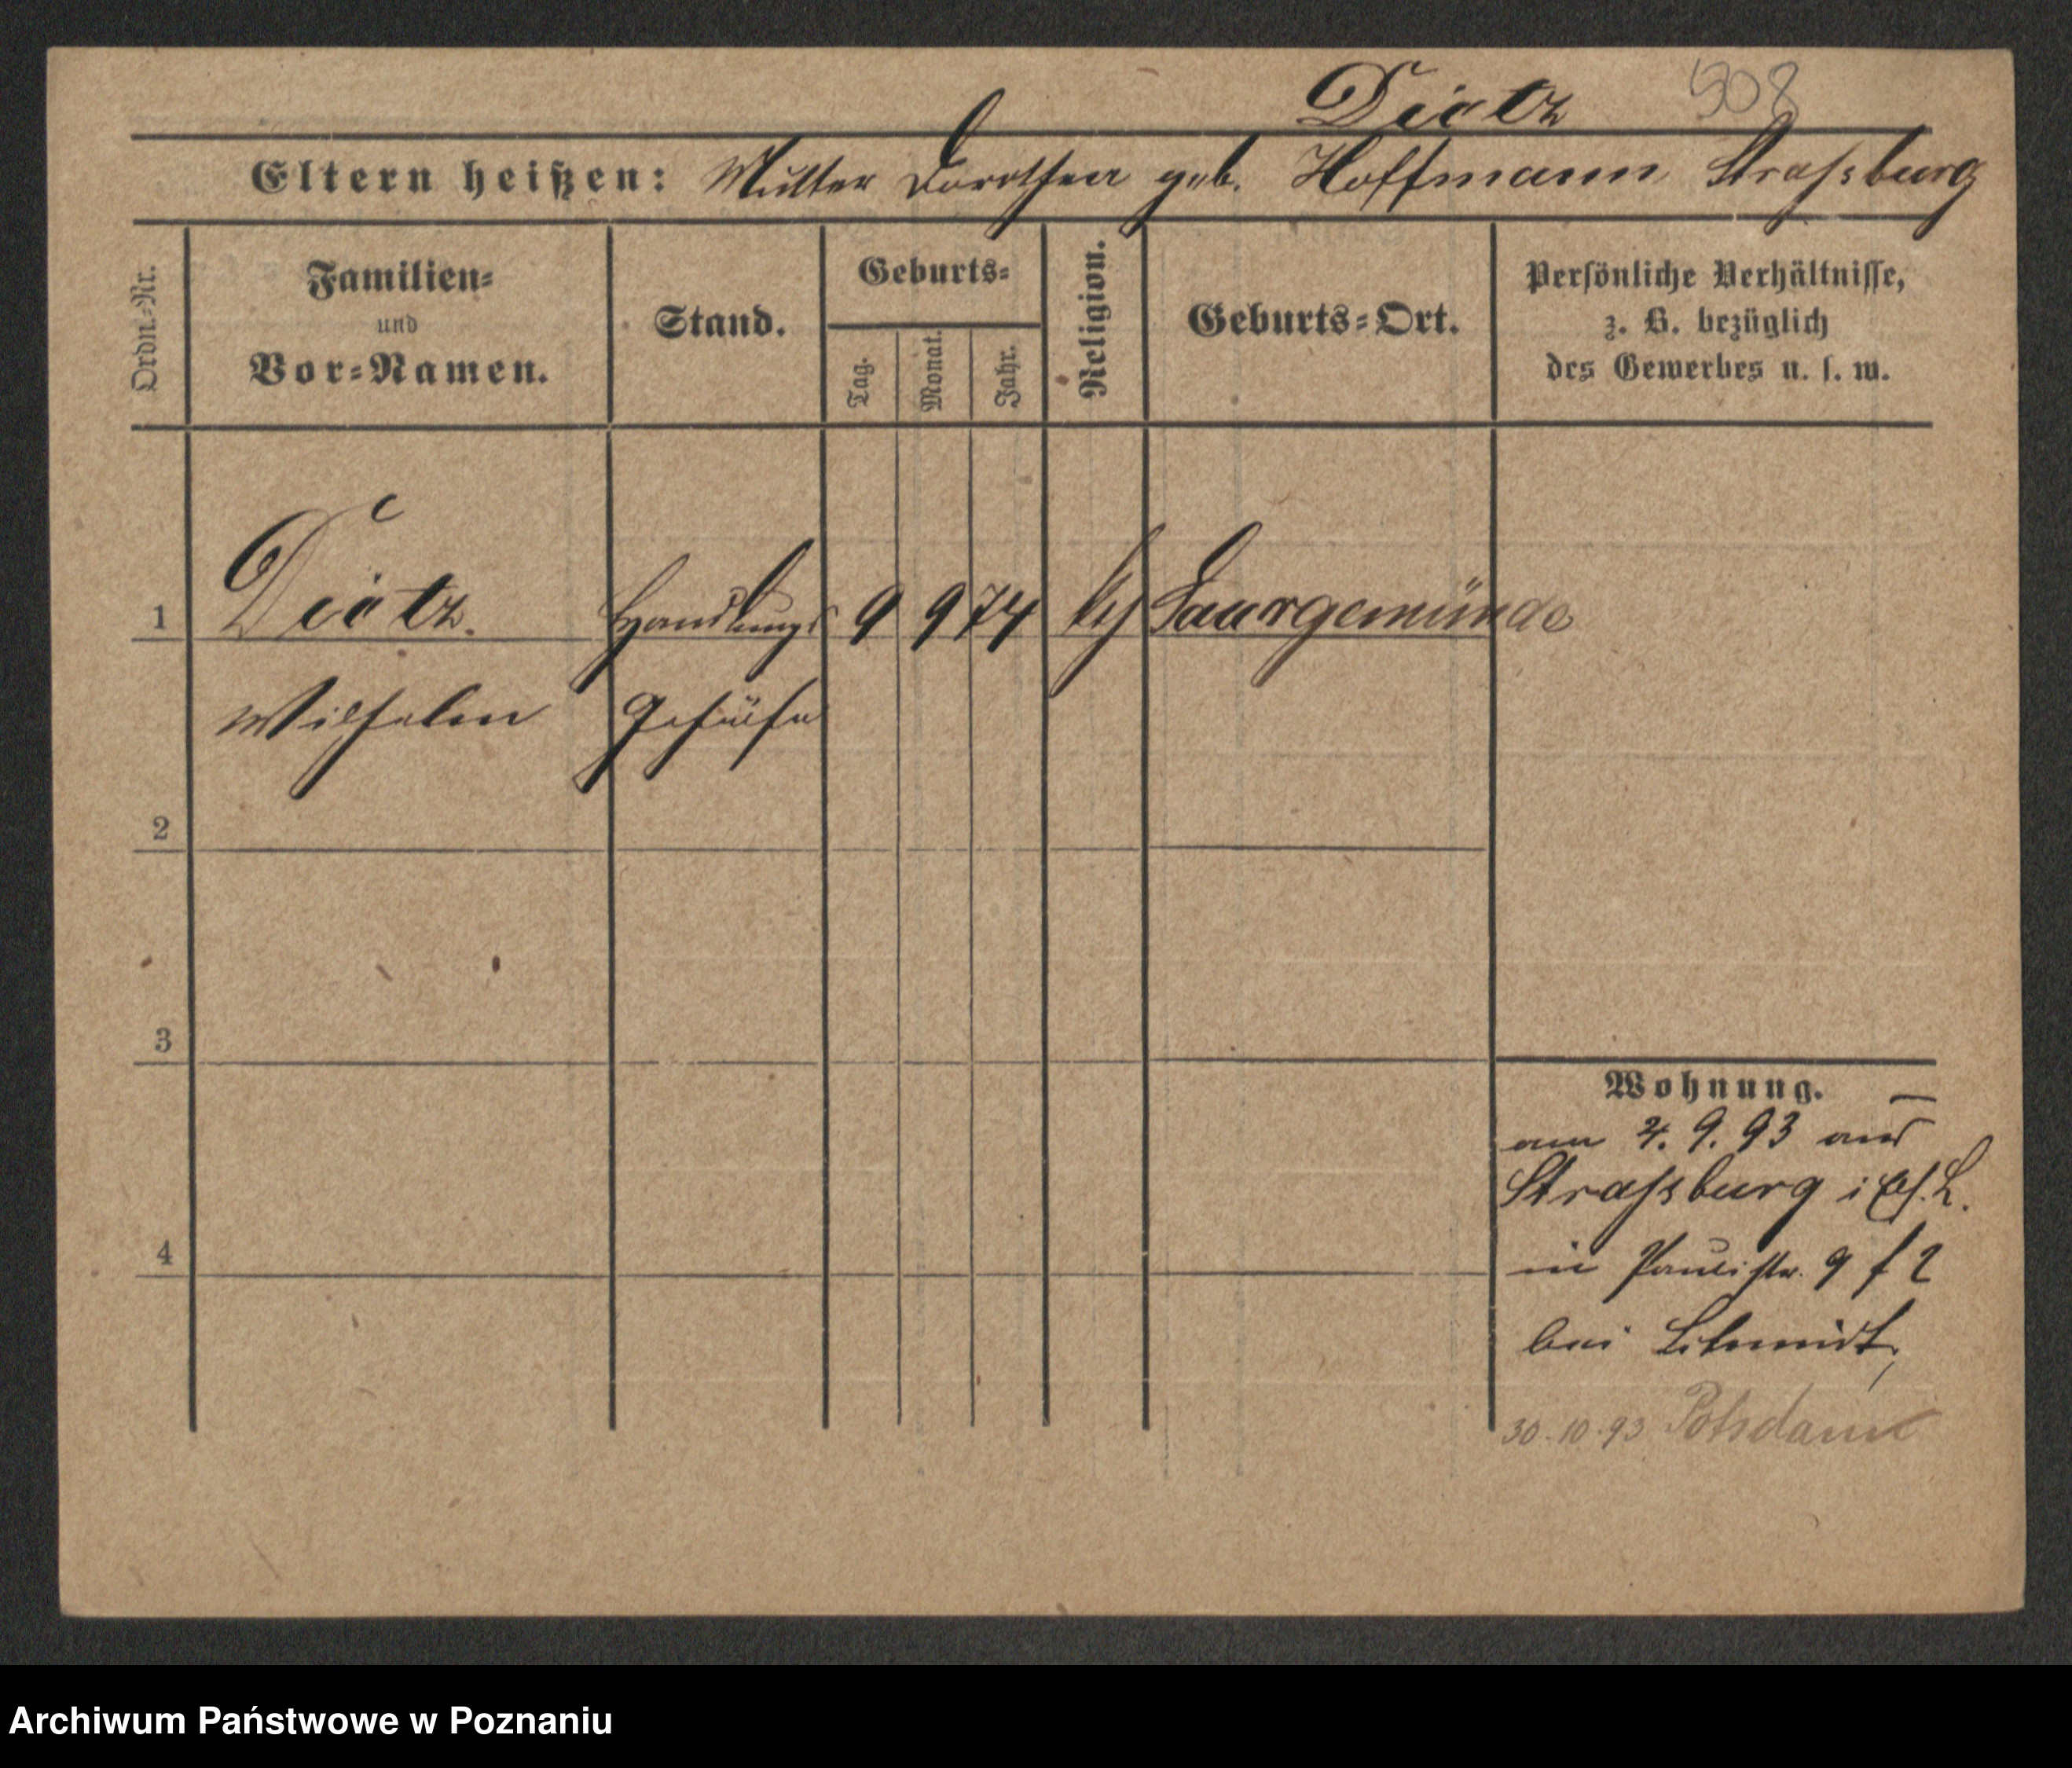 Dietz 508
Eltern heißen: Mutter Dorothea geb. Hoffmann Strassburg
Ordn.-Nr.
Familien-
und
Vor-Namen.
Stand.
Geburts-
Tag.
Monat.
Jahr.
Religion.
Geburts-Ort.
Persönliche Verhältnisse,
z. B. bezüglich
des Gewerbes u. s. w.
1 Dietz. Handlungs 9 9 74 Saargemünde
Wilhelm Gehülfe
2
3
4
Wohnung.
am 4. 9. 93 aus
Strassburg i Els. L.
in Paulistr. 9
bei Schmidt,
30.10.93 Potsdam
Archiwum Państwowe w Poznaniu